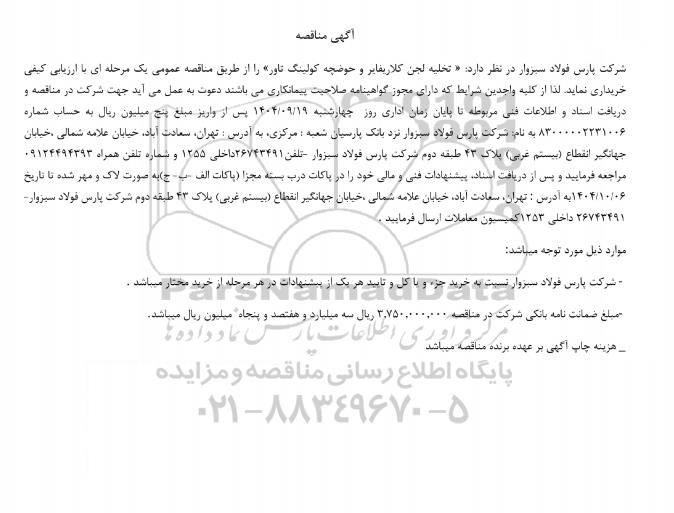 آگهی مناقصه
شرکت پارس فولاد سبزوار در نظر دارد: « تخلیه لجن کلاریفایر و حوضچه کولینگ تاور» را از طریق مناقصه عمومی یک مرحله ای با ارزیابی کیفی
خریداری نماید. لذا از کلیه واجدین شرایط که دارای مجوز گواهینامه صلاحیت پیمانکاری می باشند دعوت به عمل می آید جهت شرکت در مناقصه و
دریافت اسناد و اطلاعات فنی مربوطه تا پایان زمان اداری روز چهارشنبه ۱۴۰۴/۰۹/۱۹ پس از واریز مبلغ پنج میلیون ریال به حساب شماره
۸۳۰۰۰۰۰۲۲۳۱۰۰۶ به نام: شرکت پارس فولاد سبزوار نزد بانک پارسیان شعبه : مرکزی، به آدرس : تهران، سعادت آباد، خیابان علامه شمالی ،خیابان
جهانگیر انقطاع (بیستم غربی) پلاک ۴۳ طبقه دوم شرکت پارس فولاد سبزوار -تلفن۲۶۷۴۳۴۹۱داخلی ۱۲۵۵ و شماره تلفن همراه ۰۹۱۲۴۴۹۴۳۹۳
مراجعه فرمایید و پس از دریافت اسناد، پیشنهادات فنی و مالی خود را در پاکات درب بسته مجزا (پاکات الف -ب- ج)به صورت لاک و مهر شده تا تاریخ
۱۴۰۴/۱۰/۰۶به آدرس : تهران، سعادت آباد، خیابان علامه شمالی ،خیابان جهانگیر انقطاع (بیستم غربی) پلاک ۴۳ طبقه دوم شرکت پارس فولاد سبزوار-
۲۶۷۴۳۴۹۱ داخلی ۱۲۵۳کمیسیون معاملات ارسال فرمایید .
موارد ذیل مورد توجه میباشد:
- شرکت پارس فولاد سبزوار نسبت به خرید جزء و یا کل و تایید هر یک از پیشنهادات در هر مرحله از خرید مختار میباشد .
ParsNamadData
-مبلغ ضمانت نامه بانکی شرکت در مناقصه ۳,۷۵۰,۰۰۰,۰۰۰ ریال سه میلیارد و هفتصد و پنجاه میلیون ریال میباشد.
مرکز فرآوری اطلاعات پارس نماد داده ها
_ هزینه چاپ آگهی بر عهده برنده مناقصه میباشد
پایگاه اطلاع رسانی مناقصه و مزایده
۰۲۱-۸۸۳۴۹۶۷۰-۵